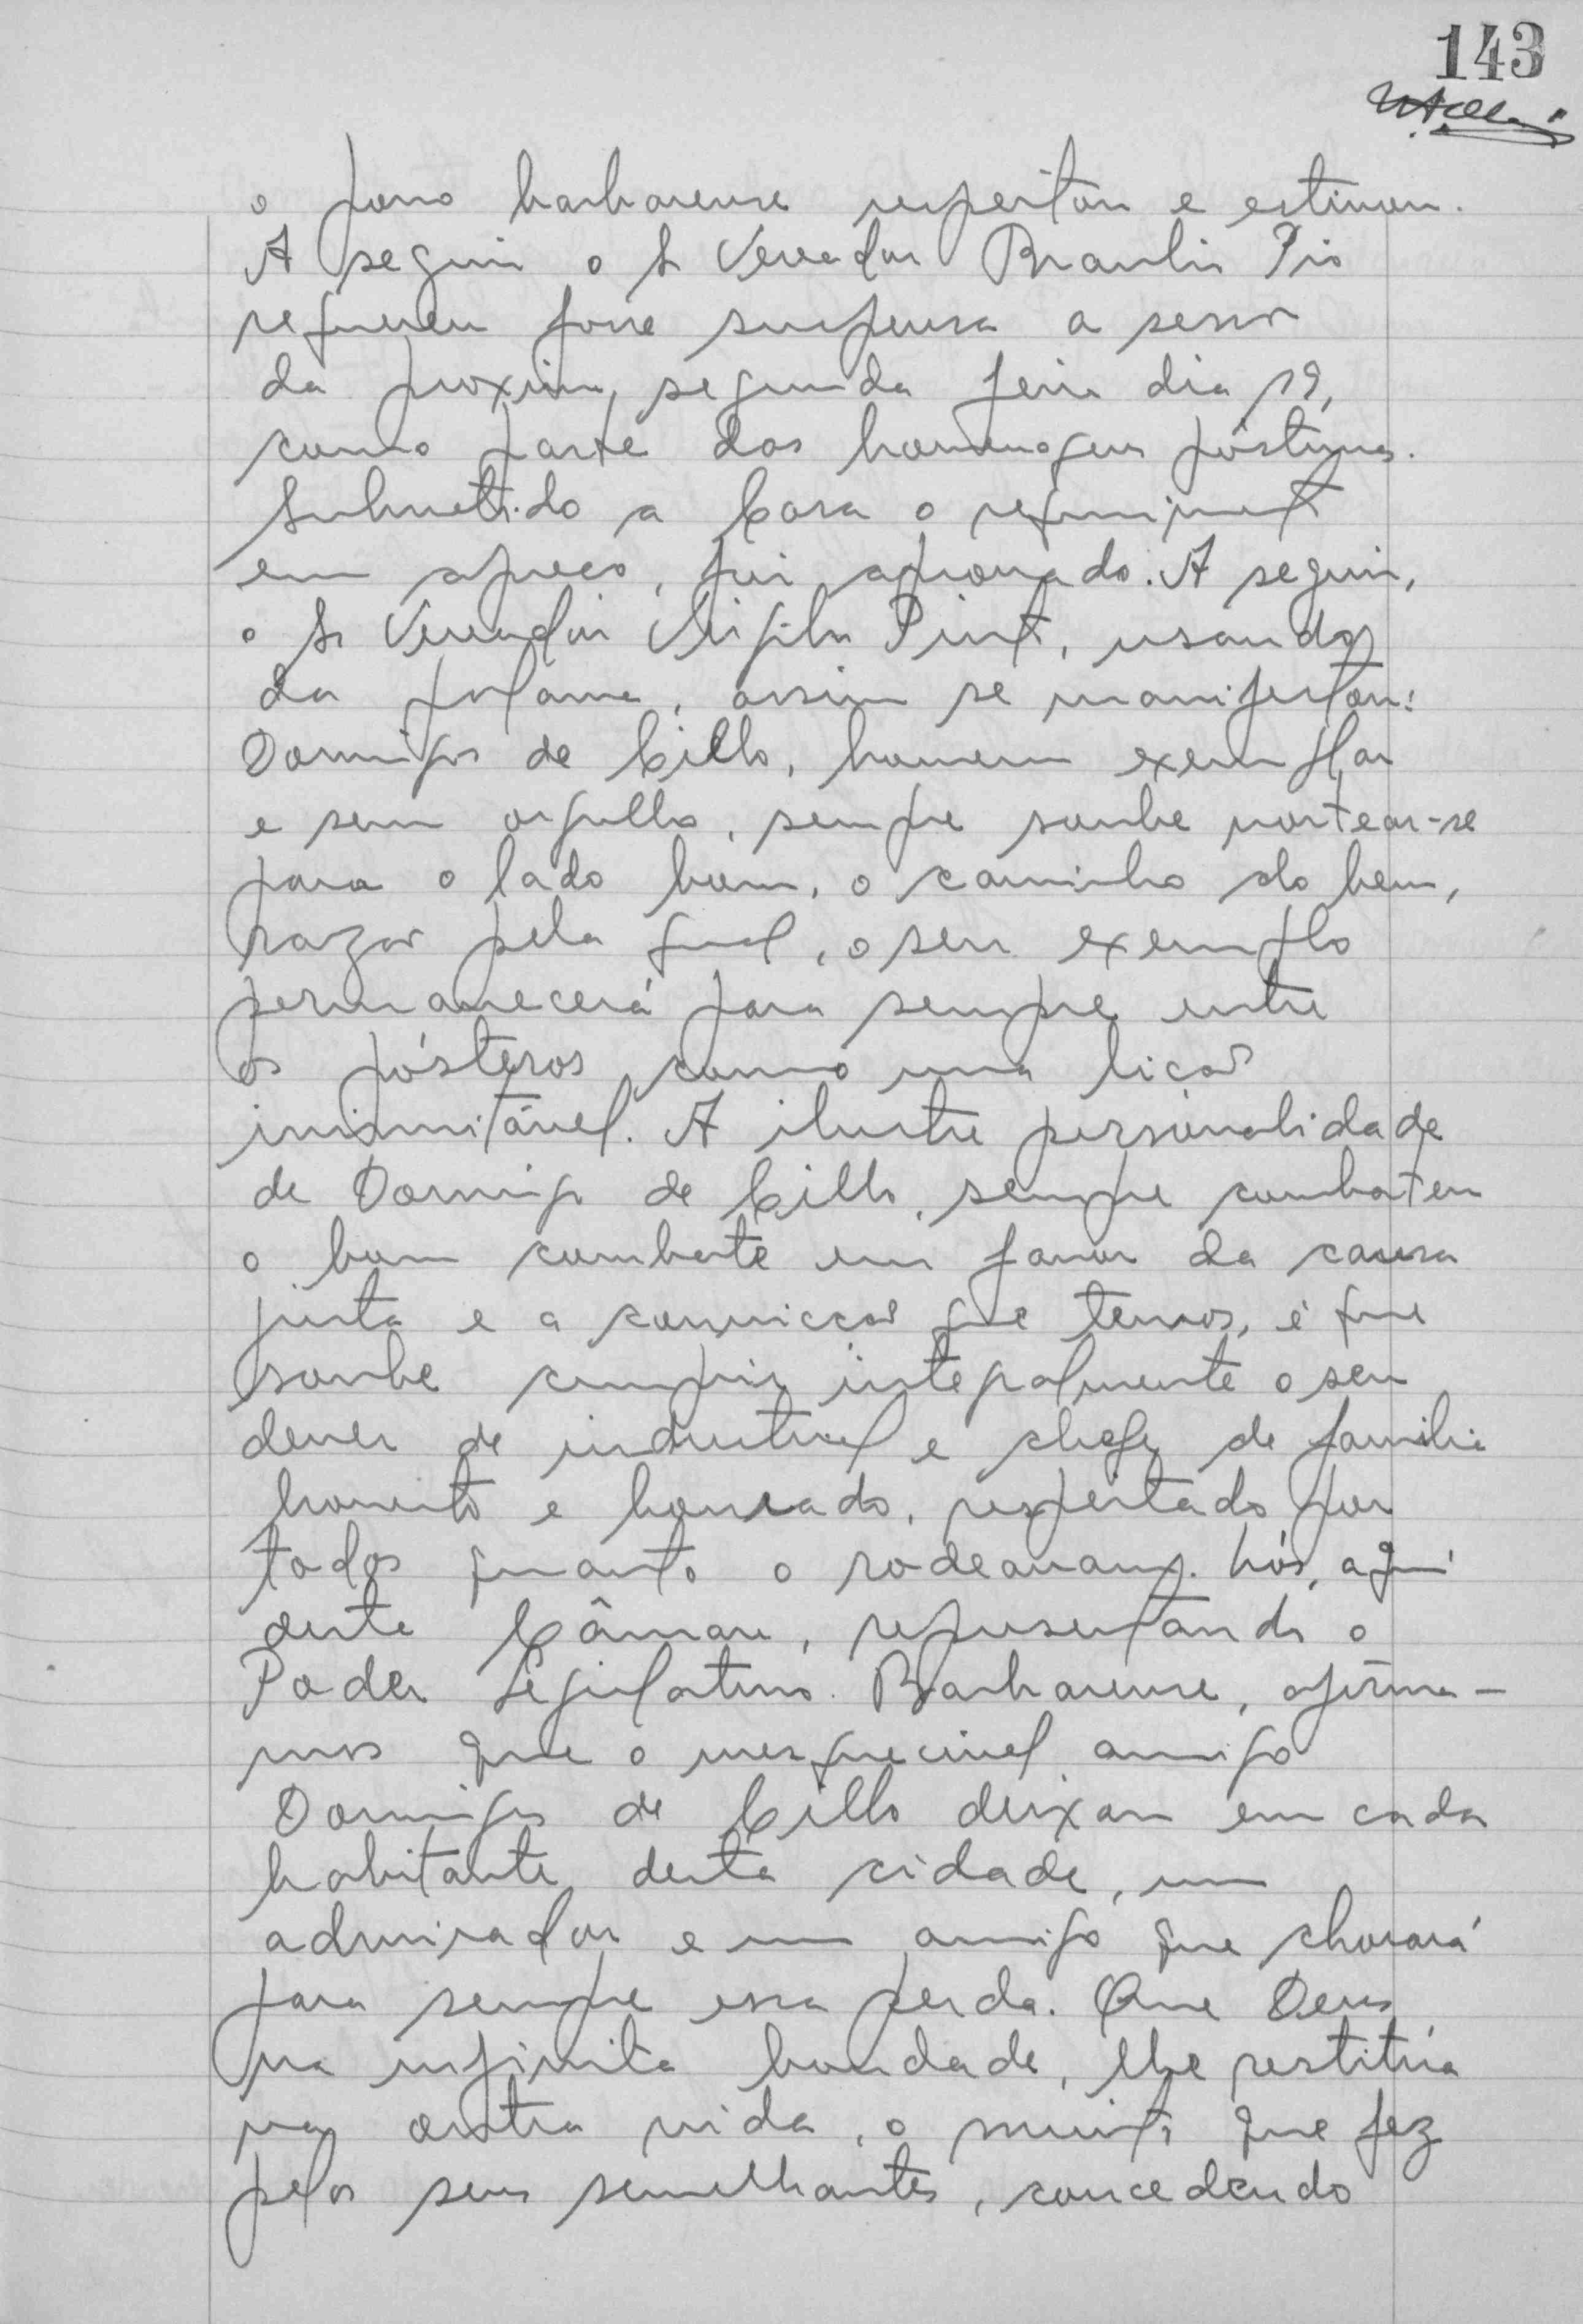 143
o povo barbarense respeitou e estimou.
A seguir o Sr Vereador Braulio Pio
requereu fosse suspensa a sessão
da proxima segunda feira dia 19,
como parte das homenagens póstumas.
Submetido a Casa o requerimento
em apreço, foi aprovado. A seguir,
o Sr Vereador Virgilio Pinto, usando
da palavra, assim se manifestou:
Domingos de Cillo, homem exemplar
e sem orgulho, sempre soube nortear-se
para o lado bom, o caminho do bem,
razão pela qual, o seu exemplo
permanecerá para sempre entre
os pósteros como uma lição
inimitável. A ilustre personalidade
de Domingos de Cillo, sempre combateu
o bom combate em favor da causa
justa e a convicção que temos, é que
soube cumprir integralmente o seu
dever de industrial e chefe de familia
honesto e honrado, respeitado por
todos quanto o rodeavam. Nós, aqui
deste Câmara, representando o
Poder Legislativo Barbarense, afirma-
mos que o inesquecivel amigo
Domingos de Cillo deixou em cada
habitante desta cidade, um
admirador e um amigo que chorará
para sempre essa perda. Que Deus
na infinita bondade, lhe restitúa
na outra vida, o muito que fez
pelos seus semelhantes, concedendo